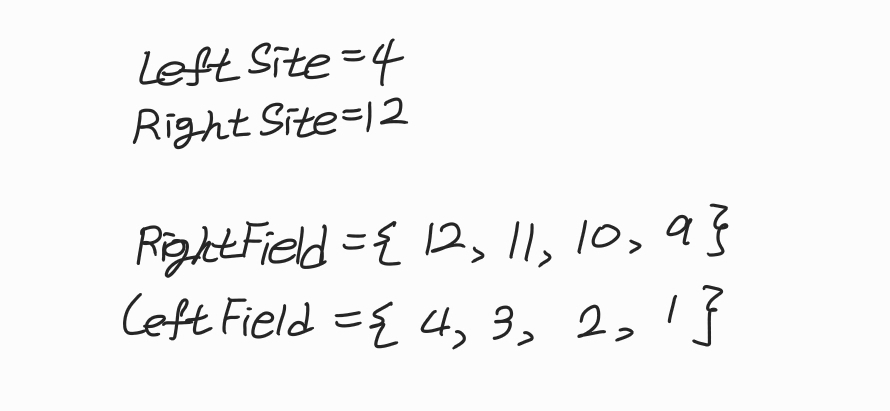 Left Site=4
Right Site=12
RightField={ 12, 11, 10, 9 }
LeftField={ 4, 3, 2, 1 }